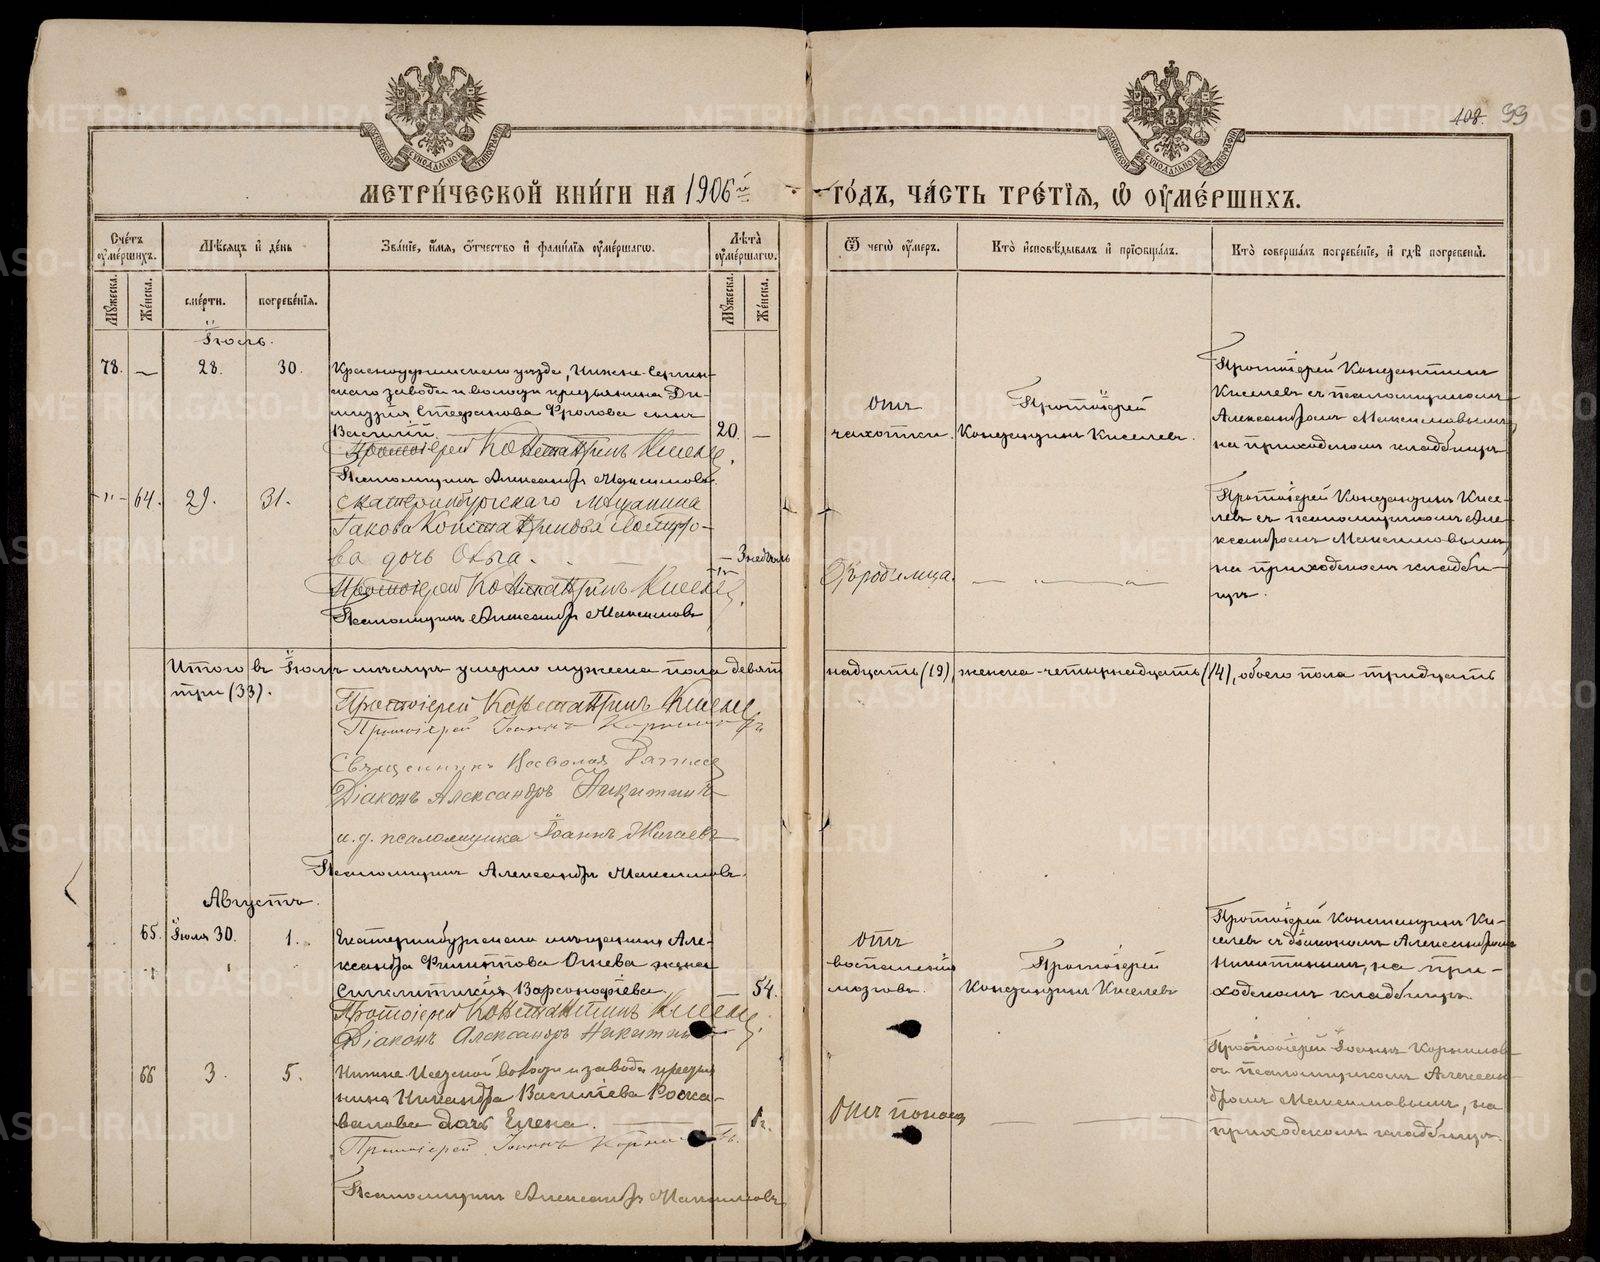 108. 33
МЕТРИ́ЧЕСКОЙ КНИ́ГИ НА 1906й ГО́ДЪ, ЧА́СТЬ ТРЕ́ТІЯ, Ѡ ОУМЕ́РШИХЪ.
Сче́тъ оуме́ршихъ.
Мѣ́сяцъ и де́нь
Зва́ніе, и́мя, о́тчество и фами́лія оуме́ршагѡ.
Лѣта̀ оуме́ршагѡ.
Ѿ чегѡ̀ оу́меръ.
Кто̀ исповѣ́дывалъ и пріобща́лъ.
Кто̀ соверша́лъ погребе́ніе, и гдѣ̀ погребены̀.
Му́жеска.
Же́нска.
сме́рти.
погребе́нія.
Му́жеска.
Же́нска.
Іюль.
78. — 28. 30.
Красноуфимскаго уѣзда, Нижне-Сергин-
скаго завода и волости крестьянина Ди-
митрія Стефанова Фролова сынъ
Василій.
20. —
Протоіерей Константинъ Киселевъ.
Псаломщикъ Александръ Максимовъ.
Отъ
чахотки.
Протоіерей
Константинъ Киселевъ.
Протоіерей Константинъ
Киселевъ съ псаломщикомъ
Александромъ Максимовымъ,
на приходскомъ кладбищѣ.
-"- 64. 29. 31.
Екатеринбургскаго мѣщанина
Іакова Константинова
ва дочь Ольга.
— 3 недѣль
Протоіерей Константинъ Киселевъ.
Псаломщикъ Александръ Максимовъ
Отъ родимца.
— " —
Протоіерей Константинъ Кисе-
левъ съ псаломщикомъ Але-
ксандромъ Максимовымъ,
на приходскомъ кладби-
щѣ.
Итого въ Іюлѣ мѣсяцѣ умерло мужеска пола девят надцать (19), женска четырнадцать (14), обоего пола тридцать
три (33).
Протоіерей Константинъ Киселевъ
Протоіерей Іоаннъ Корниловъ
Священникъ Всеволод
Діаконъ Александръ Никитинъ
и. д. псаломщика Іоаннъ
Псаломщикъ Александръ Максимовъ.
Августъ.
65. Іюля 30. 1.
Екатеринбургскаго мѣщанина Але-
ксандра Филиппова Ошева жена
Синклитикія Варсонофіева.
— 54.
Протоіерей Константинъ Киселевъ.
Діаконъ Александръ Никитинъ
Отъ
воспаленія
мозговъ.
Протоіерей
Константинъ Киселевъ
Протоіерей Константинъ Ки-
селевъ съ діакономъ Александромъ
Никитинымъ, на при-
ходскомъ кладбищѣ.
66 3. 5.
Нижне Исетской волости и завода крестья
нина Никандра Васильева Роска-
валова дочь Елена.
Протоіерей Іоаннъ Корниловъ.
Псаломщикъ Александръ Максимовъ
Отъ поноса
Протоіерей Іоаннъ Корнилов
съ псаломщикомъ Алексан-
дромъ Максимовымъ, на
приходскомъ кладбищѣ.
METRIKI.GASO-URAL.RU